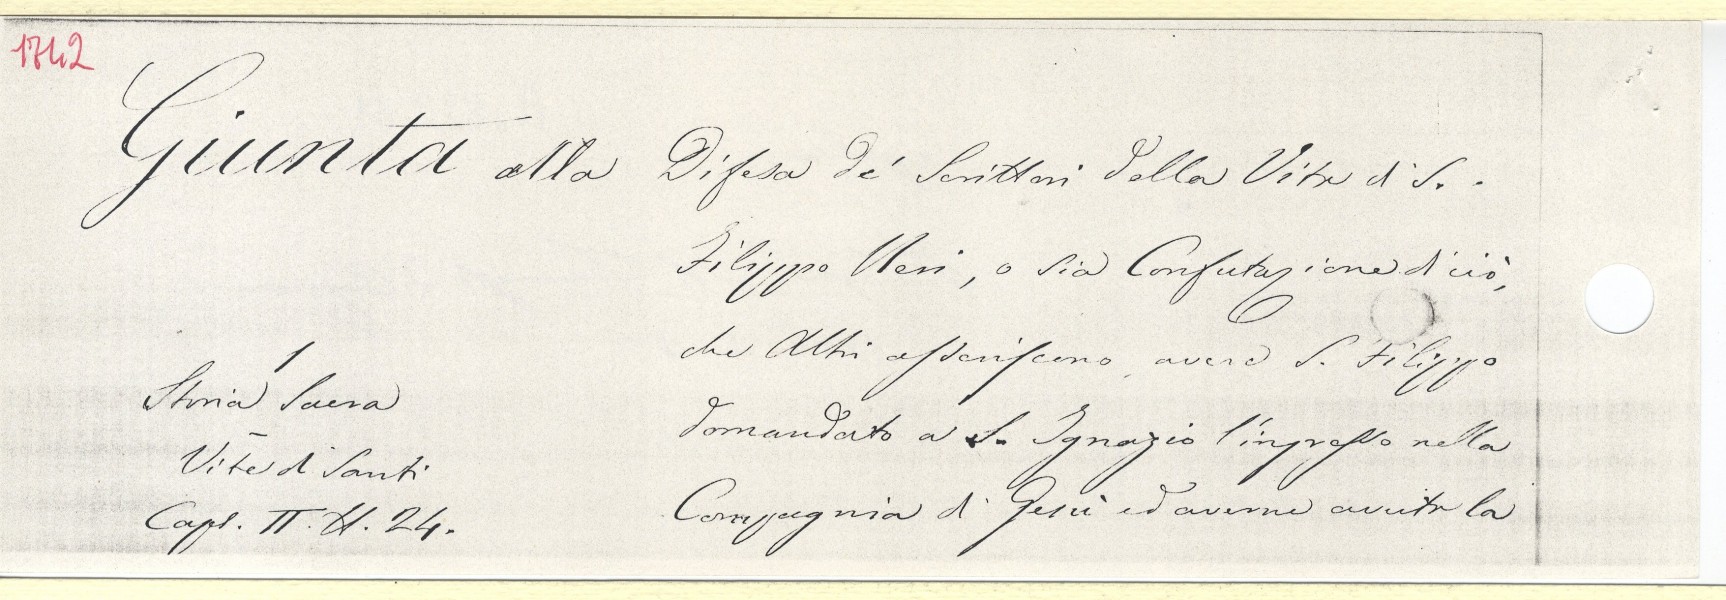 1742
Giunta alla Difesa de' Scrittori della Vita di S.
Filippo Neri, o sia Confutazione di ciò,
che Altri asseriscono avere S. Filippo
domandato a S. Ignazio l'ingresso nella
Compagnia di Gesù ed averne avuta la
Storia Sacra
Vite di Santi
Caps. II. N. 24.